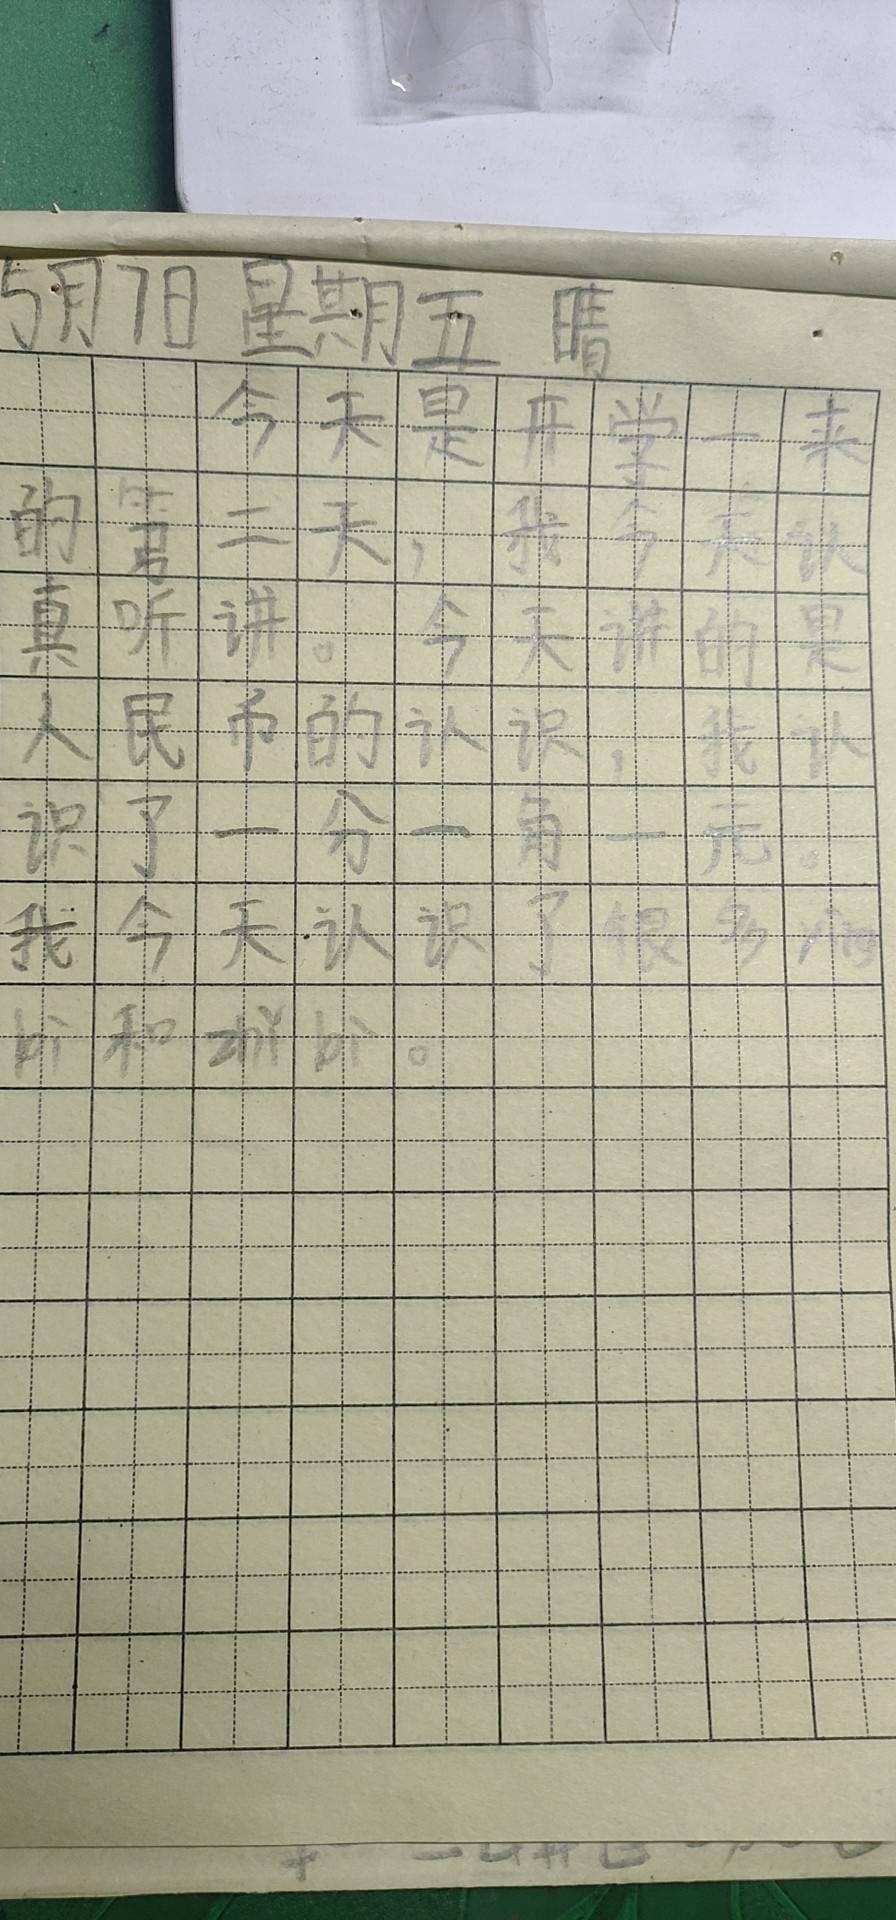 5月7日 星期五 晴
今天是开学一来
的第二天，我今天认
真听讲。今天讲的是
人民币的认识，我认
识了一分一角一元。
我今天认识了很多
和